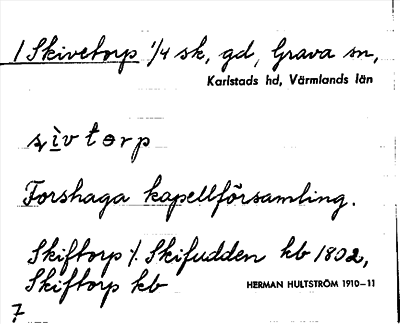 1 Skivetorp 1/4 sk, gd, Grava sn,
Karlstads hd, Värmlands län
Forshaga kapellförsamling.
Skiftorp /. Skifudden kb 1802,
Skiftorp kb
HERMAN HULTSTRÖM 1910–11
7